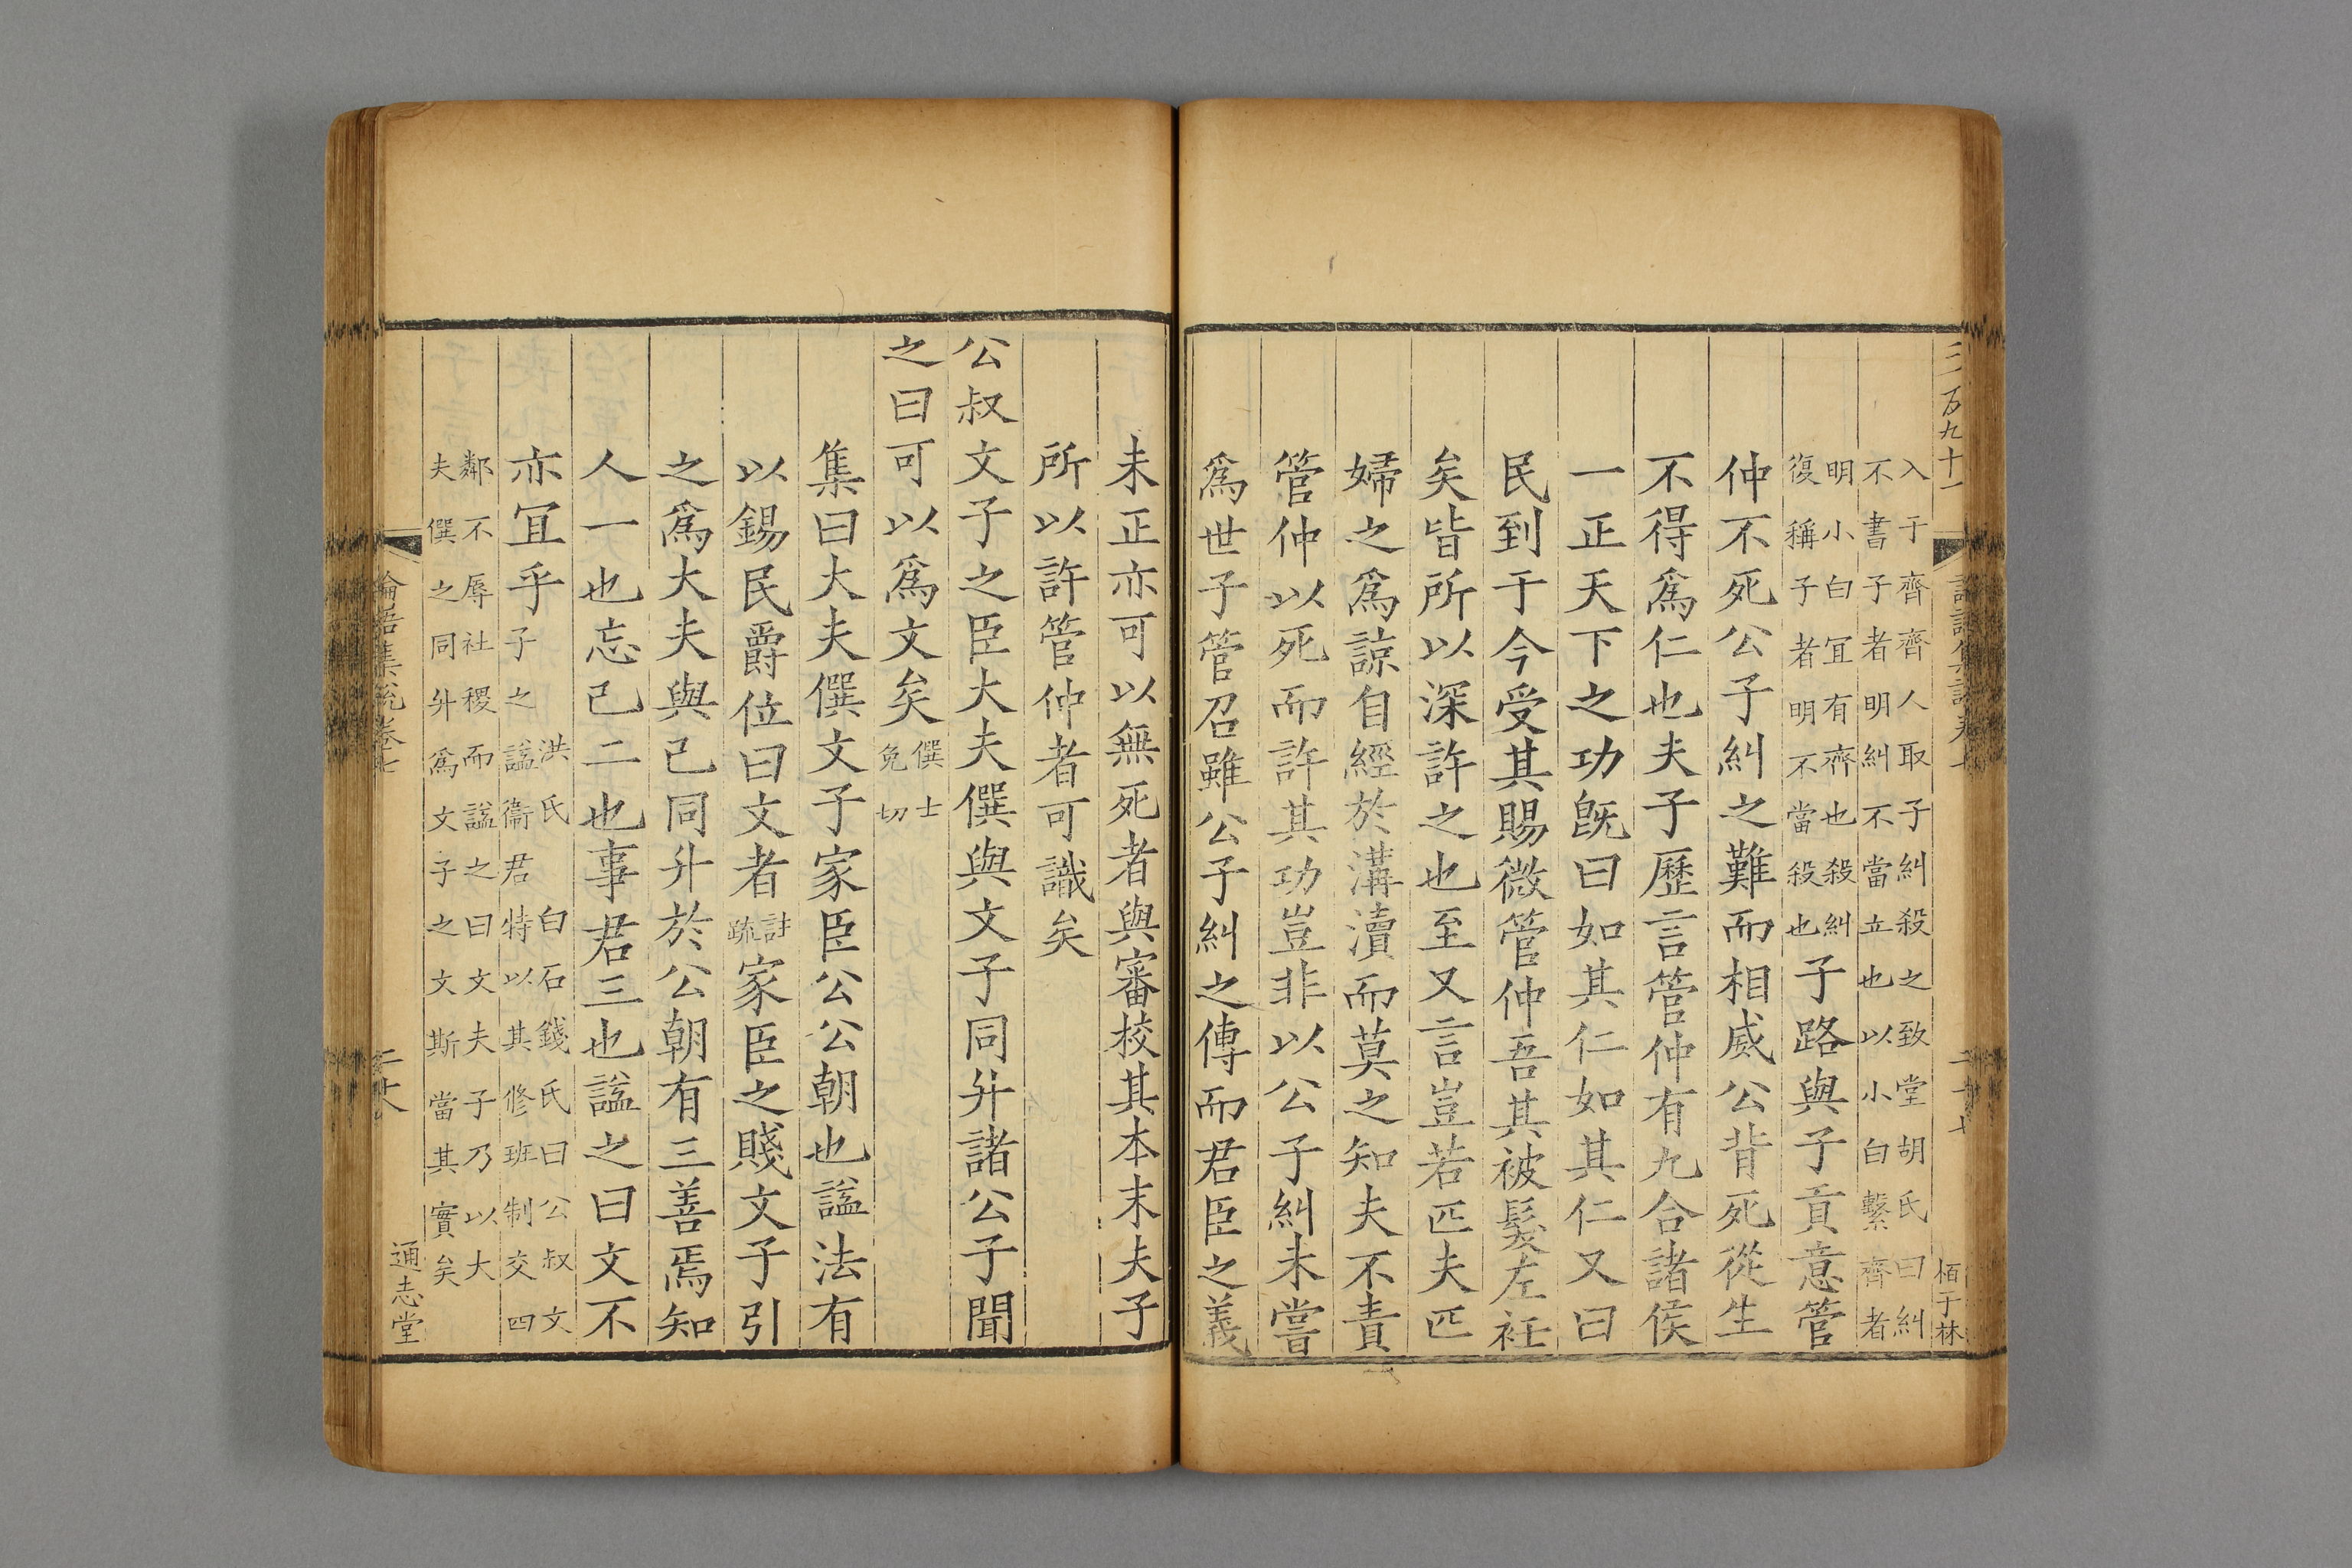 三百九十一
入于齊齊人取子糾殺之致堂胡氏曰糾
不書子者明糾不當立也以小白繫齊者
明小白冝有齊也殺糾
復稱子者明不當殺也子路與子貢意管
仲不死公子糾之難而相威公背死從生
不得爲仁也夫子歷言管仲有九合諸侯
一正天下之功旣曰如其仁如其仁又曰
民到于今受其賜微管仲吾其被髮左衽
矣皆所以深許之也至又言豈若匹夫匹
婦之爲諒自經於溝瀆而莫之知夫不責
管仲以死而許其功豈非以公子糾未嘗
爲世子管召雖公子糾之傳而君臣之義
二十七
栢于林
未正亦可以無死者與審校其本末夫子
所以許管仲者可識矣
公叔文子之臣大夫僎與文子同升諸公子聞
之曰可以爲文矣僎士
免切
集曰大夫僎文子家臣公公朝也諡法有
以錫民爵位曰文者註
疏家臣之賤文子引
之爲大夫與己同升於公朝有三善焉知
人一也忘己二也事君三也諡之曰文不
亦冝乎子之
洪氏
諡衞君
白石錢氏曰公叔文
特以其修班制交四
鄰不辱社稷而諡之曰文夫子乃以大
夫僎之同升爲文子之文斯當其實矣
論語集說卷七
通志堂